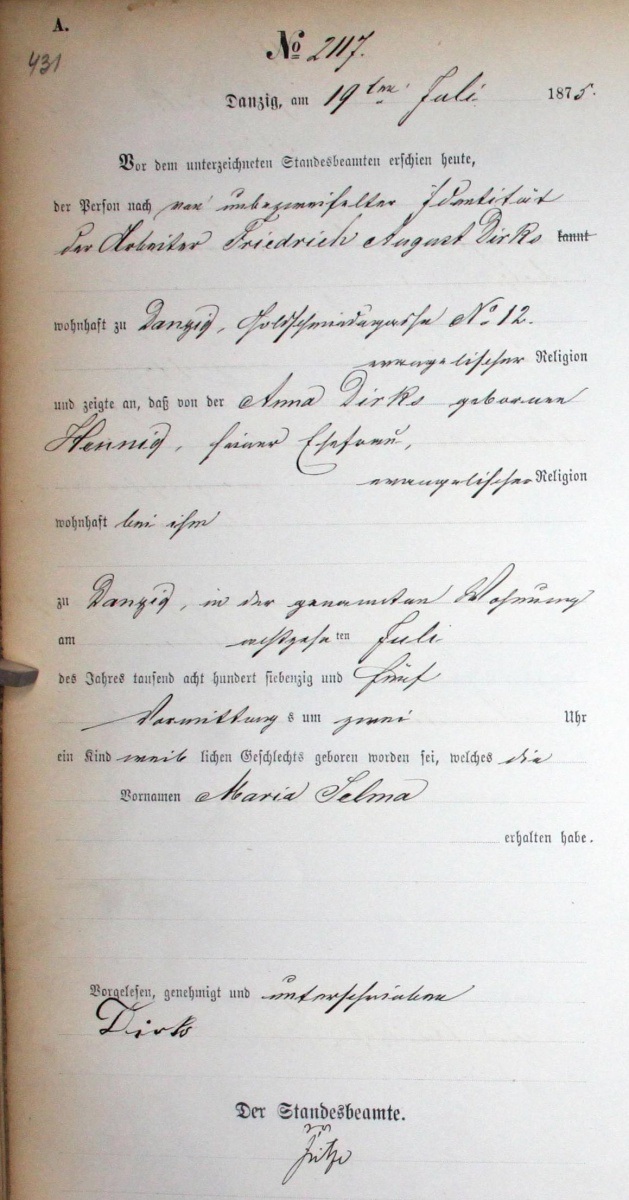 A.
431
No 2117.
Danzig, am 19ten Juli 1875.
Vor dem unterzeichneten Standesbeamten erschien heute,
der Person nach von unbezweifelter Identität
der Arbeiter Friedrich August Dirks kannt
wohnhaft zu Danzig, Goldschmiedegasse No 12.
evangelischer Religion
und zeigte an, daß von der Anna Dirks geborenen
Hennig, seiner Ehefrau,
evangelischer Religion
wohnhaft bei ihm
zu Danzig, in der genannten Wohnung
am achtzehnten Juli
des Jahres tausend acht hundert siebenzig und fünf
Vormittags um zwei Uhr
ein Kind weiblichen Geschlechts geboren worden sei, welches die
Vornamen Maria Selma
erhalten habe.
Vorgelesen, genehmigt und unterschrieben
Dirks
Der Standesbeamte.